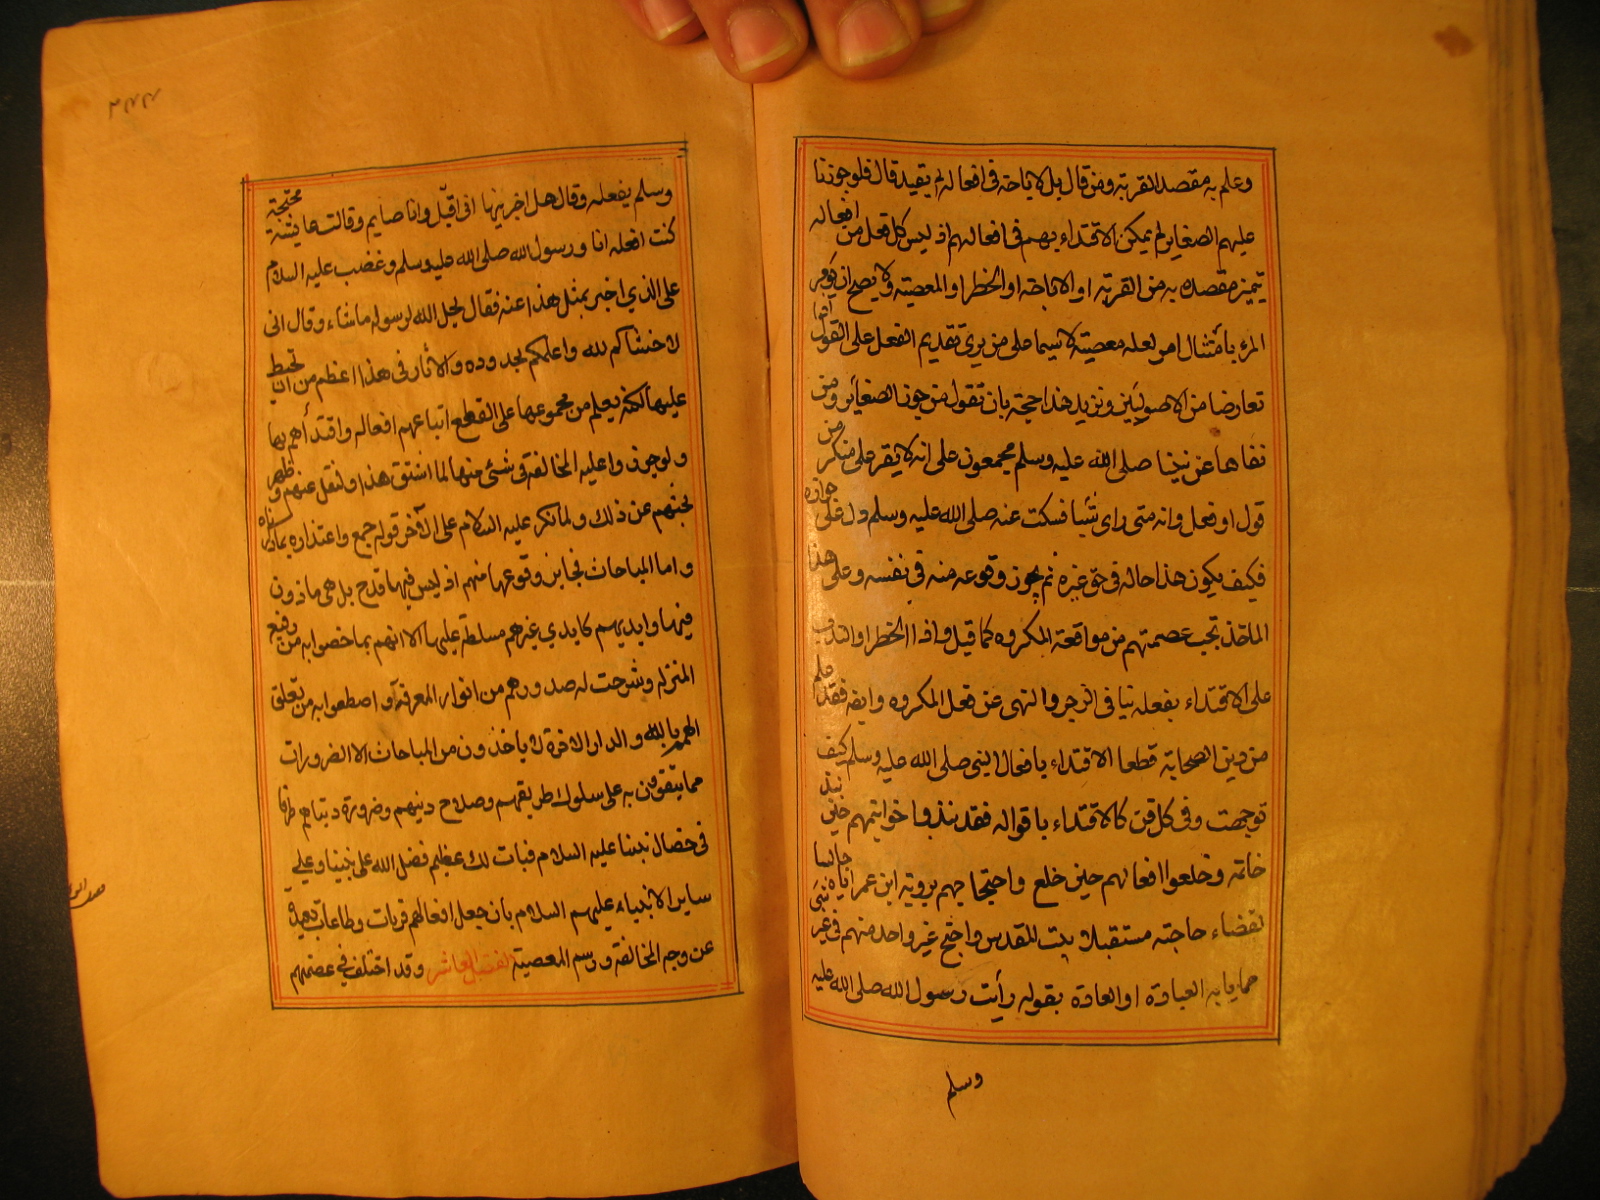 وعلم به مقصد القربة ومن قال بل الاباحة فى افعاله لم يقيد قال فلو جوزنا
عليهم الصغاير لم يمكن الاقتداء بهم فى افعالهم اذ ليس كل فعل من افعاله
يتميز مقصده به من القربة او الاباحة او الحظر او المعصية ولا يصح ان يومر
المرء بامتثال امر لعله معصية لا سيما على من يرى تقديم الفعل على القول اذا
تعارضا من الاصوليين ونزيد هذا حجة بان نقول من جوز الصغائر ومن
نفاها عن نبينا صلى الله عليه وسلم مجمعون على انه لا يقر على منكر من
قول او فعل وانه متى راى شيئا فسكت عنه صلى الله عليه وسلم دل على جوازه
فكيف يكون هذا حاله فى حق غيره ثم يجوز وقوعه منه فى نفسه وعلى هذا
الماخذ تجب عصمتهم من مواقعة المكروه كما قيل واذ الحظر او الندب
على الاقتداء بفعله ينافى الزجر والنهى عن فعل المكروه وايضا فقد علم
من دين الصحابة قطعا الاقتداء بافعال النبى صلى الله عليه وسلم كيف
توجهت وفى كل فن كالاقتداء باقواله فقد نبذوا خواتيمهم حين نبذ
خاتمه وخلعوا نعالهم حين خلع واحتجاجهم بروية ابن عمر اياه جالسا
لقضاء حاجته مستقبلا بيت المقدس واحتج غير واحد منهم فى غير شئ
مما بابه العبادة او العادة بقوله رأيت رسول الله صلى الله عليه
وسلم
وسلم يفعله وقال هل اخبرتيها انى اقبّل وانا صايم وقالت عايشة محتجة
كنت افعله انا ورسول الله صلى الله عليه وسلم وغضب عليه السلام
على الذي اخبر بمثل هذا عنه فقال يحل الله لرسوله ما شاء وقال انى
لاخشاكم لله واعلمكم بحدوده والاثار فى هذا اعظم من ان تحيط
عليها لكنه يعلم من مجموعها على القطع اتباعهم افعاله واقتدأهم بها
ولو جوزوا عليه المخالفة فى شئ منها لما استق هذا ولنقل عنهم وظهر
بحثهم عن ذلك ولما نكر عليه السلام على الآخر قوله جمع واعتذاره بما ذكرناه
واما المباحات فجايز وقوعها منهم اذ ليس فيها قدح بل هى ماذون
فيها وايديهم كايدي غيرهم مسلطة عليها الا انهم بما خصوا به من رفيع
المنزله وشرحت له صدورهم من انوار المعرفة واصطفوا به من تعلق
الهمم بالله والدار الاخرة لا ياخذون من المباحات الا الضرورات
مما يتقوون به على سلوك طريقهم وصلاح دينهم وضرورة دنياهم طرفا
فى خصال نبينا عليه السلام فبات لك عظيم فضل الله على نبينا وعلى
ساير الانبياء عليهم السلام بان جعل افعالهم قربات وطاعات بعيدة
عن وجه المخالفة ورسم المعصية الفصل العاشر وقد اختلف فى عصمتهم